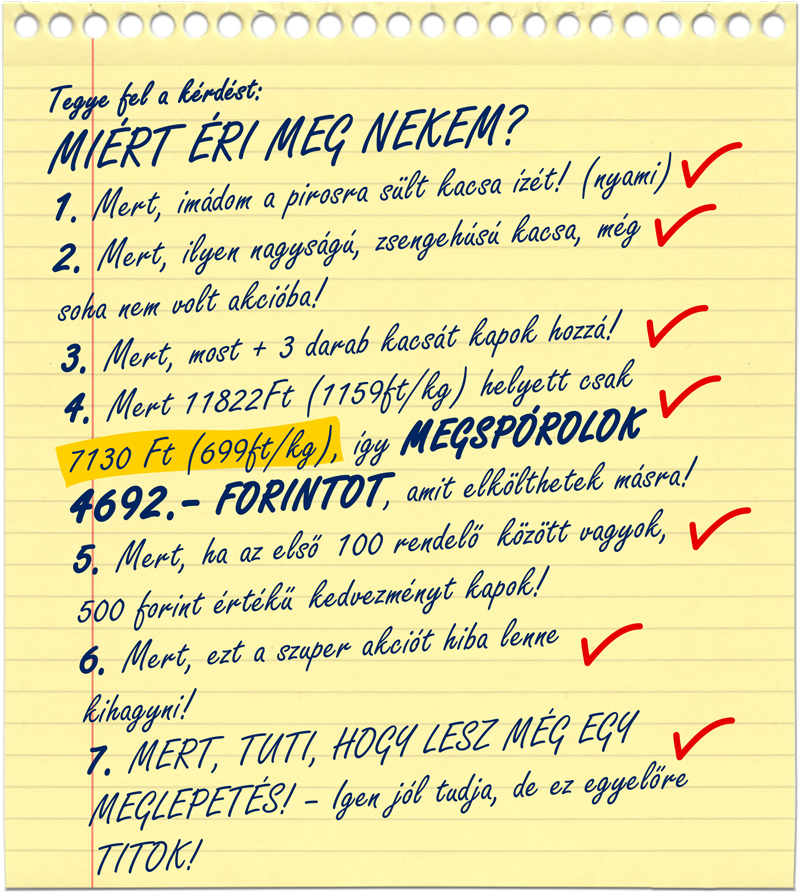 Tegye fel a kérdést:
MIÉRT ÉRI MEG NEKEM?
1. Mert, imádom a pirosra sült kacsa ízét! (nyami)
2. Mert, ilyen nagyságú, zsengehúsú kacsa, még
soha nem volt akcióba!
3. Mert, most + 3 darab kacsát kapok hozzá!
4. Mert 11822Ft (1159ft/kg) helyett csak
7130 Ft (699ft/kg), így MEGSPÓROLOK
4692.- FORINTOT, amit elkölthetek másra!
5. Mert, ha az első 100 rendelő között vagyok,
500 forint értékű kedvezményt kapok!
6. Mert, ezt a szuper akciót hiba lenne
kihagyni!
7. MERT, TUTI, HOGY LESZ MÉG EGY
MEGLEPETÉS! – Igen jól tudja, de ez egyelőre
TITOK!